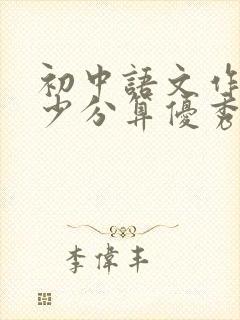 初中語文作
少分算優秀
李偉丰